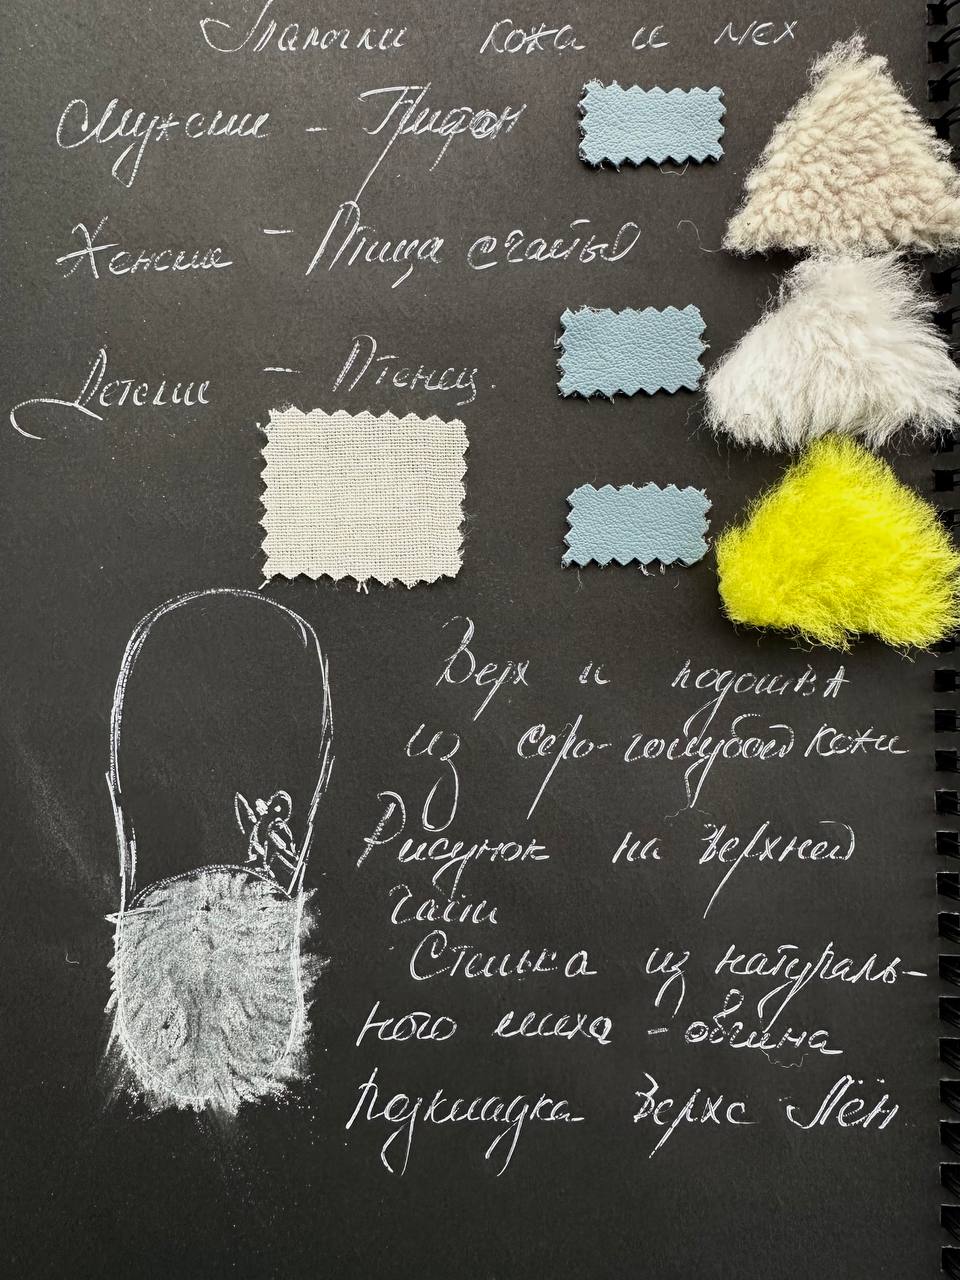 Тапочки кожа и мех
Мужские - Грифон
Женские - Птица счастья
Детские - Птенец.
Верх и подошва
из серо-голубой кожи
Рисунок на верхней
части
Стелька из натураль-
ного меха - овчина
Подкладка верха Лён